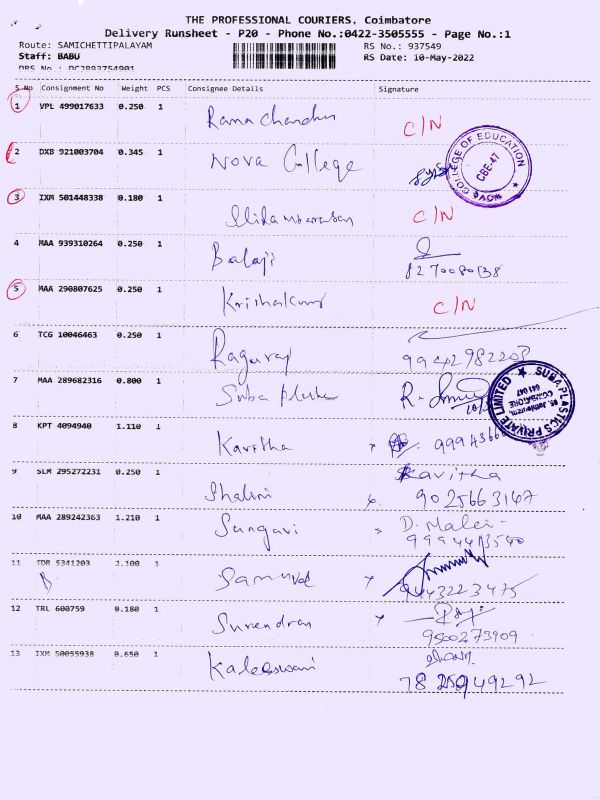 THE PROFESSIONAL COURIERS. Coimbatore
Delivery Runsheet - P20 - Phone No.:0422-3505555 - Page No.:1
Route: SAMICHETTIPALAYAM RS No.: 937549
Staff: BABU RS Date: 10-May-2022
DRS No : DCJ893754901
S No Consignment No Weight PCS Consignee Details Signature
1 VPL 499017633 0.250 1 Rama Chandru C/N
2 DXB 921003704 0.345 1 Nova College
COLLEGE OF EDUCATION CBE-47
3 IXM 501448338 0.180 1 C/N
4 MAA 939310264 0.250 1 Balaji
8270080838
5 MAA 290807625 0.250 1 C/N
6 TCG 10046463 0.250 1 Raguraj
9942982208
7 MAA 289682316 0.800 1 Suba
SUBA PLASTICS PRIVATE LIMITED COIMBATORE 641 047
8 KPT 4094940 1.110 1 Kavitha
9 SLM 295272231 0.250 1 Shalini Kavitha
9025663147
10 MAA 289242363 1.210 1 Sangavi D. Malei
11 TDR 5341203 2.100 1 Samuvel
9443223475
12 TRL 600759 0.180 1 Surendran
9500273909
13 IXM 50055938 0.650 1 Kaleeswari